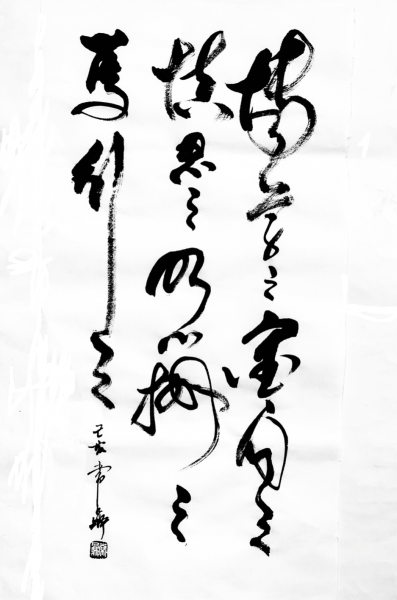 博學之審問之
慎思之明辨之
篤行之
己亥